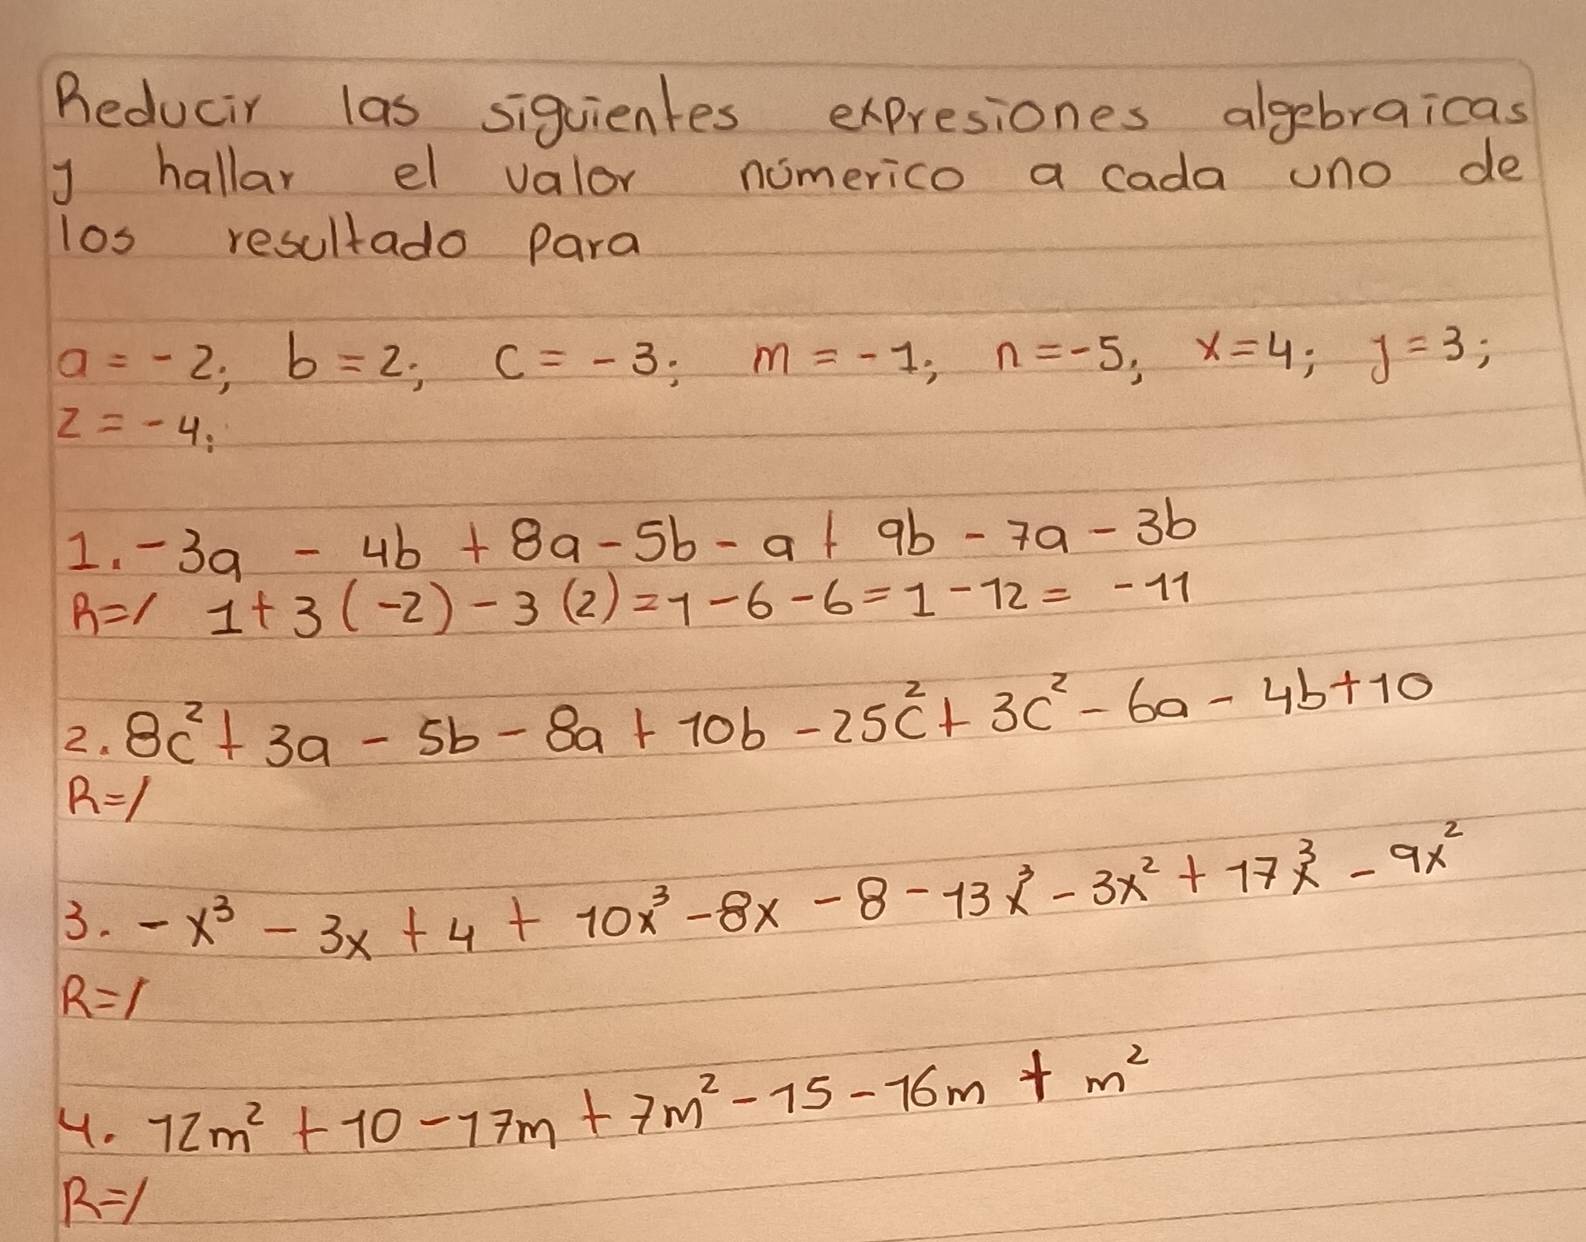 Reducir las siguientes expresiones algebraicas
y hallar el valor númerico a cada uno de
los resultado para
a = -2; b = 2; c = -3; m = -1; n = -5; x = 4; y = 3;
z = -4;
1. -3a - 4b + 8a - 5b - a + 9b - 7a - 3b
R=/ 1 + 3 (-2) - 3 (2) = 1 - 6 - 6 = 1 - 12 = -11
2. 8c² + 3a - 5b - 8a + 10b - 25c² + 3c² - 6a - 4b + 10
R=/
3. -x³ - 3x + 4 + 10x³ - 8x - 8 - 13x³ - 3x² + 17x³ - 9x²
R=/
4. 12m² + 10 - 17m + 7m² - 15 - 16m + m²
R=/